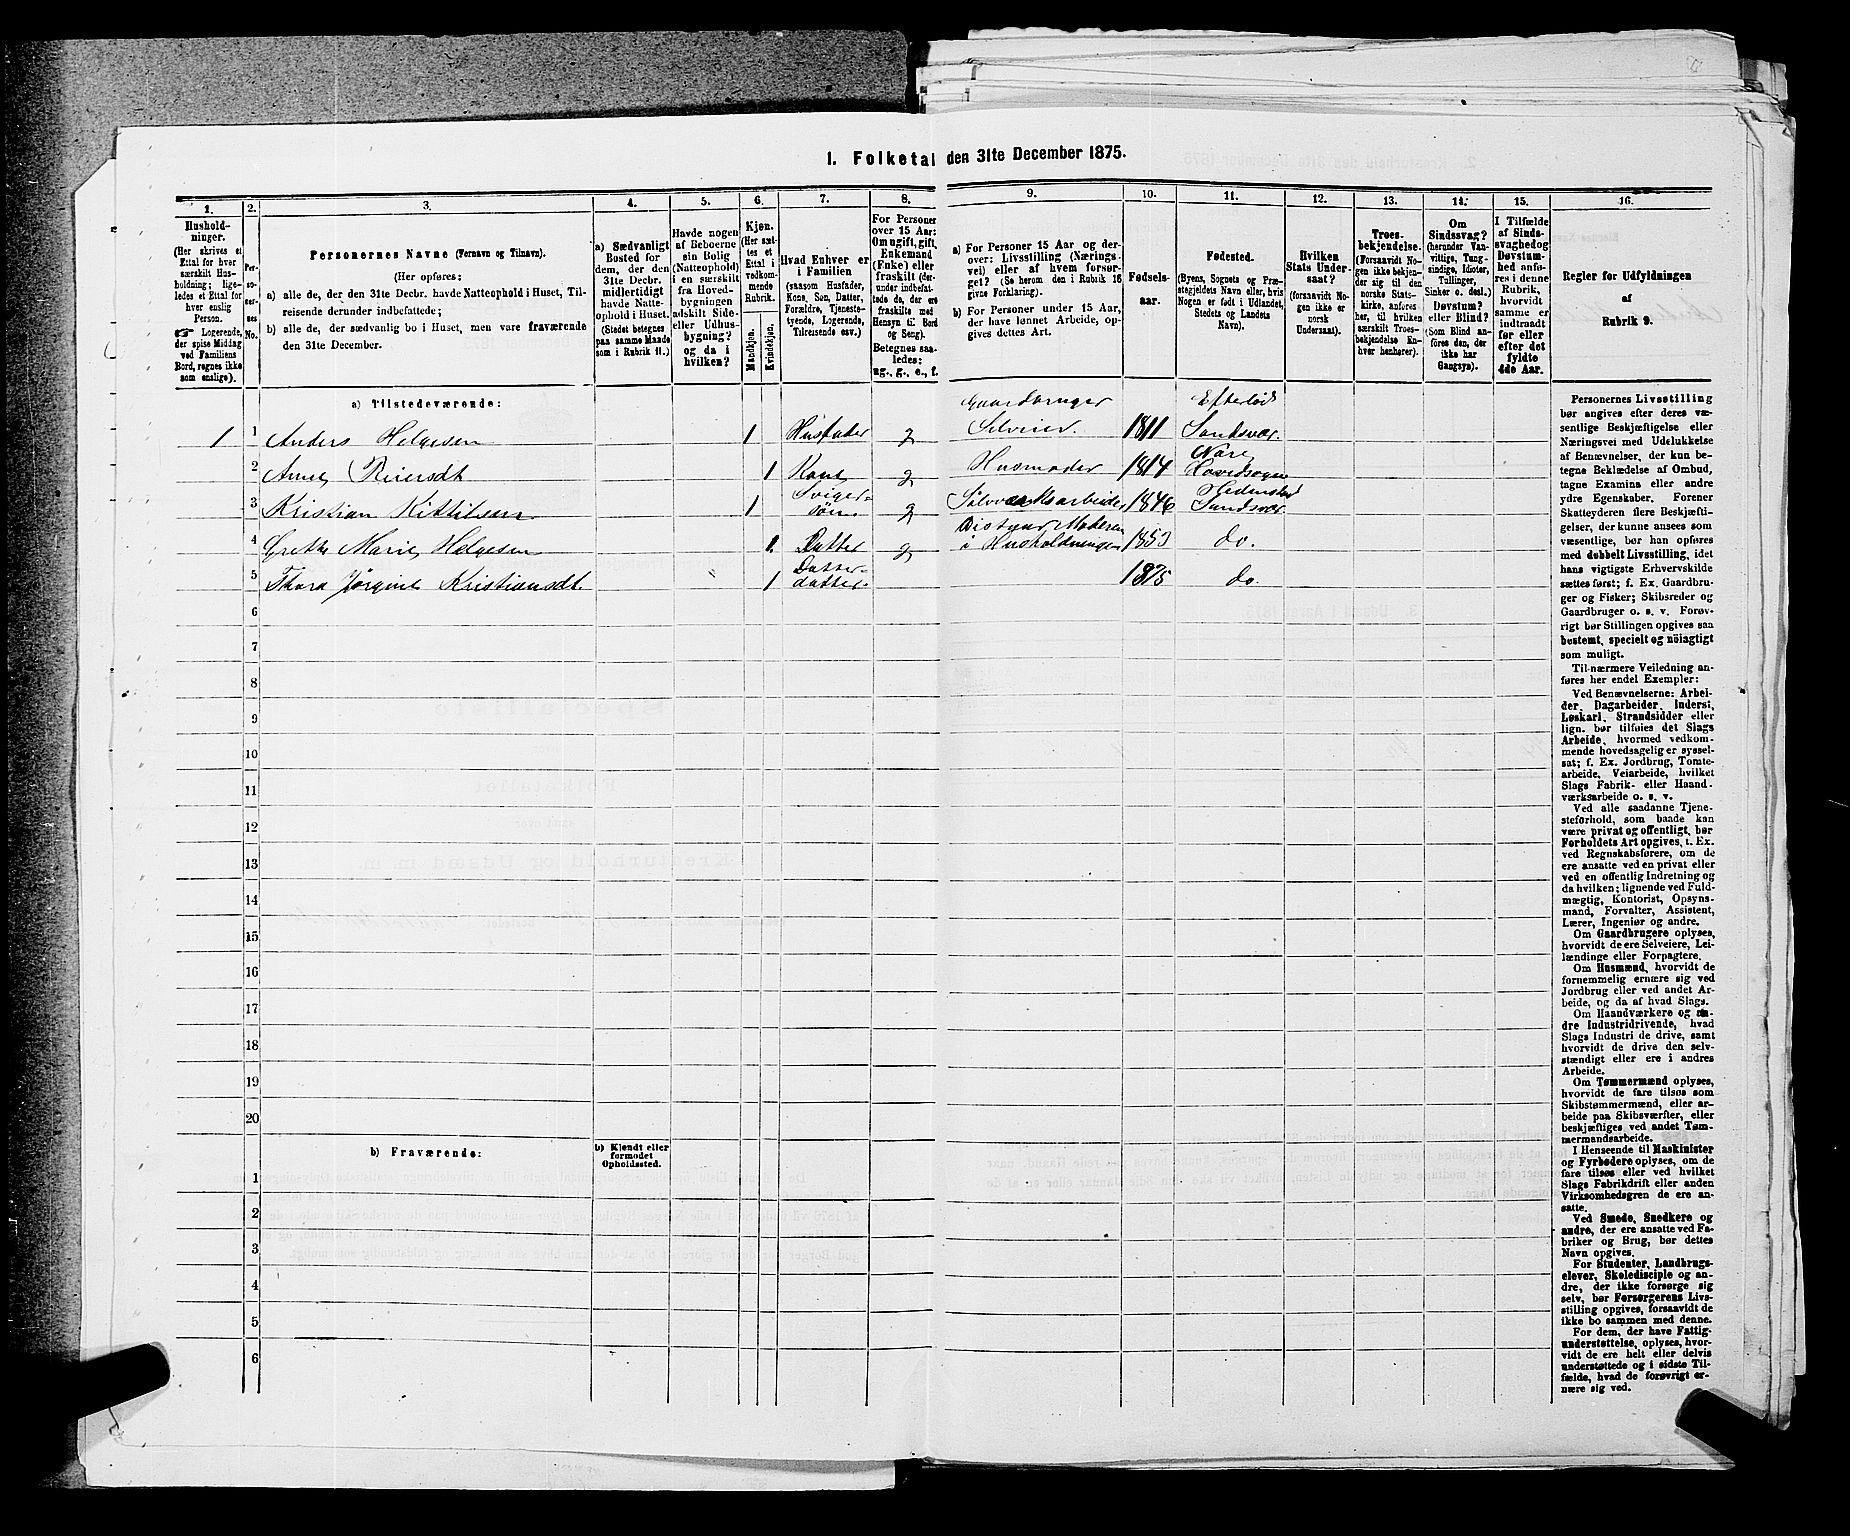 1. Folketal den 31te December 1875.
1.
2.
3.
4.
5.
6.
7.
8.
9.
10.
11.
12.
13.
14.
15.
16.
Hushold-
ninger.
(Her skrives et
Ettal for hver
særskilt Hus-
holdning; lige-
ledes et Ettal for
hver enslig
Person.
☞ Logerende,
der spise Middag
ved Familiens
Bord, regnes ikke
som enslige).
Per-
so-
ner-
nes
No.
Personernes Navne (Fornavn og Tilnavn).
(Her opføres:
a) alle de, der den 31te Decbr. havde Natteophold i Huset, Til-
reisende derunder indbefattede;
b) alle de, der sædvanlig bo i Huset, men vare fraværende
den 31te December.
a) Sædvanligt
Bosted for
dem, der den
31te Decbr.
midlertidigt
havde Natte-
ophold i Huset.
(Stedet betegnes
paa samme Maade
som i Rubrik 11.)
Havde nogen
af Beboerne
sin Bolig
(Natteophold)
i en særskilt
fra Hoved-
bygningen
adskilt Side-
eller Udhus-
bygning?
og da i
hvilken?
Kjøn.
(Her sæt-
tes et
Ettal i
vedkom-
mende
Rubrik.
Mandkjøn.
Kvindekjøn.
Hvad Enhver er
i Familien
(saasom Husfader,
Kone, Søn, Datter,
Forældre, Tjeneste-
tyende, Logerende,
Tilreisende osv.)
For Personer
over 15 Aar:
Om ugift, gift,
Enkemand
(Enke) eller
fraskilt (der-
under indbefat-
tede de, der ere
fraskilte med
Hensyn til Bord
og Seng).
Betegnes saa-
ledes:
ug., g., e., f.
a) For Personer 15 Aar og der-
over: Livsstilling (Nærings-
vei) eller af hvem forsør-
get? (Se herom den i Rubrik 16
givne Forklaring).
b) For Personer under 15 Aar,
der have lønnet Arbeide, op-
gives dettes Art.
Fødsels-
aar.
Fødested.
(Byens, Sognets og Præ-
stegjeldets Navn eller, hvis
Nogen er født i Udlandet,
Stedets og Landets
Navn).
Hvilken
Stats Under-
saat?
(forsaavidt No-
gen ikke er
norsk
Undersaat).
Troes-
bekjendelse.
(Forsaavidt No-
gen ikke bekjen-
der sig til den
norske Stats-
kirke, anføres
her, til hvilken
særskilt Troes-
bekjendelse En-
hver henhører).
Om
Sindssvag?
(herunder Van-
vittige, Tung-
sindige, Idioter,
Tullinger,
Sinker o. desl.)
Døvstum?
eller Blind?
(Som Blind an-
føres den, der
ikke har
Gangsyn).
I Tilfælde
af Sinds-
svaghed og
Døvstum-
hed anfø-
res i denne
Rubrik,
hvorvidt
samme er
indtraadt
før eller
efter det
fyldte
4de Aar.
Regler for Udfyldningen
af
Rubrik 9.
a) Tilstedeværende:
Gaardbruger
Efterløds
1 1 Anders Helgesen 1 Husfader g Selveier. 1811 Sandsvær.
2 Anne Reiersdt 1 Kone g Husmoder 1814 Nore Hovedsogne
3 Kristian Kittilsen 1 Sviger- søn g Sølvværksarbeider 1846 Hedenstad Sandsvær
4 Grethe Marie Helgesen 1 Datter g Bistaar Moderen i Husholdningen 1853 do.
5 Thora Jørgine Kristiansdt. 1 Datter- datter 1875 do.
6
7
8
9
10
11
12
13
14
15
16
17
18
19
20
b) Fraværende:
b) Kjendt eller
formodet
Opholdssted.
1
2
3
4
5
6
Personernes Livsstilling
bør angives efter deres væ-
sentlige Beskjæftigelse eller
Næringsvei med Udelukkelse
af Benævnelser, der kun be-
tegne Beklædelse af Ombud,
tagne Examina eller andre
ydre Egenskaber. Forener
Skatteyderen flere Beskjæfti-
gelser, der kunne ansees som
væsentlige, bør han opføres
med dobbelt Livsstilling, idet
hans vigtigste Erhvervskilde
sættes først; f. Ex. Gaardbru-
ger og Fisker; Skibsreder og
Gaardbruger o. s. v. Forøv-
rigt bør Stillingen opgives saa
bestemt, specielt og nöiagtigt
som muligt.
Til nærmere Veiledning an-
føres her endel Exempler:
Ved Benævnelserne: Arbei-
der, Dagarbeider, Inderst,
Løskarl, Strandsidder eller
lign. bør tilføies det Slags
Arbeide, hvormed vedkom-
mende hovedsagelig er syssel-
sat; f. Ex. Jordbrug, Tomte-
arbeide, Veiarbeide, hvilket
Slags Fabrik- eller Haand-
værksarbeide o. s. v.
Ved alle saadanne Tjene-
steforhold, som baade kan
være privat og offentligt, bør
Forholdets Art opgives, t. Ex.
ved Regnskabsførere, om de
ere ansatte ved en privat eller
ved en offentlig Indretning og
da hvilken; lignende ved Fuld-
mægtig, Kontorist, Opsyns-
mand, Forvalter, Assistent,
Lærer, Ingeniør og andre.
Om Gaardbrugere oplyses,
hvorvidt de ere Selveiere, Lei-
lændinge eller Forpagtere.
Om Husmænd, hvorvidt de
fornemmelig ernære sig ved
Jordbrug eller ved andet Ar-
beide, og da af hvad Slags.
Om Haandværkere og an-
dre Industridrivende, hvad
Slags Industri de drive, samt
hvorvidt de drive den selv-
stændigt eller ere i andres
Arbeide.
Om Tømmermænd oplyses,
hvorvidt de fare tilsøs som
Skibstømmermænd, eller ar-
beide paa Skibsværfter, eller
beskjæftiges ved andet Tøm-
mermandsarbeide.
I Henseende til Maskinister
og Fyrbødere oplyses, om de
fare tilsøs eller ved hvilket
Slags Fabrikdrift eller anden
Virksomhedsgren de ere an-
satte.
Ved Smede, Snedkere og
andre, der ere ansatte ved Fa-
briker og Brug, bør dettes
Navn opgives.
For Studenter, Landbrugs-
elever, Skoledisciple og an-
dre, der ikke forsørge sig
selv, bør Forsørgerens Livs-
stilling opgives, forsaavidt de
ikke bo sammen med denne.
For dem, der have Fattig-
understøttelse, oplyses, hvor-
vidt de ere helt eller delvis
understøttede og i sidste Til-
fælde, hvad de forøvrigt er-
nære sig ved.